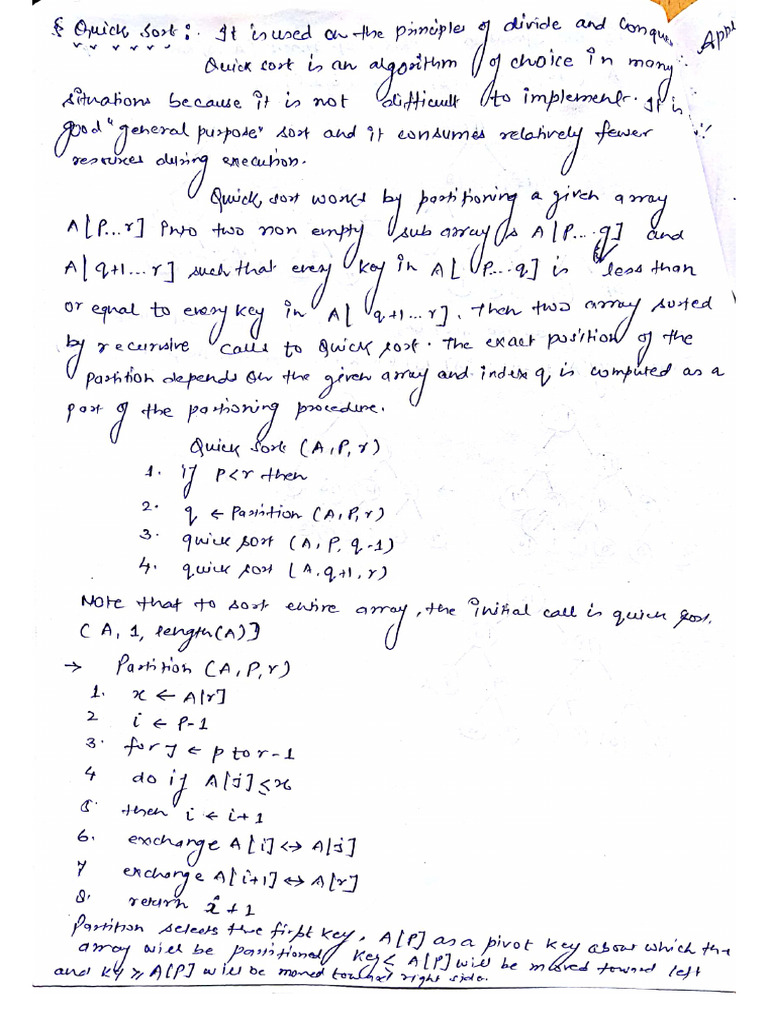 § Quick Sort :- It is used on the principle of divide and Conque
Quick sort is an algorithm of choice in many
situations because it is not difficult to implement. It is
good "general purpose" sort and it consumes relatively fewer
resources during execution.
Quick, sort works by partitioning a given array
A[P...r] into two non empty sub array's A[P...q] and
A[q+1...r] such that every key in A[P...q] is less than
or equal to every key in A[q+1...r]. Then two array sorted
by recursive calls to Quick sort. The exact position of the
Partition depends on the given array and index q is computed as a
part of the partioning procedure.
Quick Sort (A,P,r)
1. if P<r then
2. q ← Partition (A,P,r)
3. quick sort (A, P, q-1)
4. quick sort (A, q+1, r)
Note that to sort entire array, the initial call is quick sort.
(A, 1, length(A)]
→ Partition (A,P,r)
1. x ← A[r]
2 i ← P-1
3. for j ← p to r-1
4 do if A[j] ≤ x
5. then i ← i+1
6. exchange A[i] ↔ A[j]
7 exchange A[i+1] ↔ A[r]
8. return i+1
Partition selects the first key, A[P] as a pivot key about which the
array will be partitioned Key < A[P] will be moved toward left
and ky ≥ A[P] will be moved toward right side.